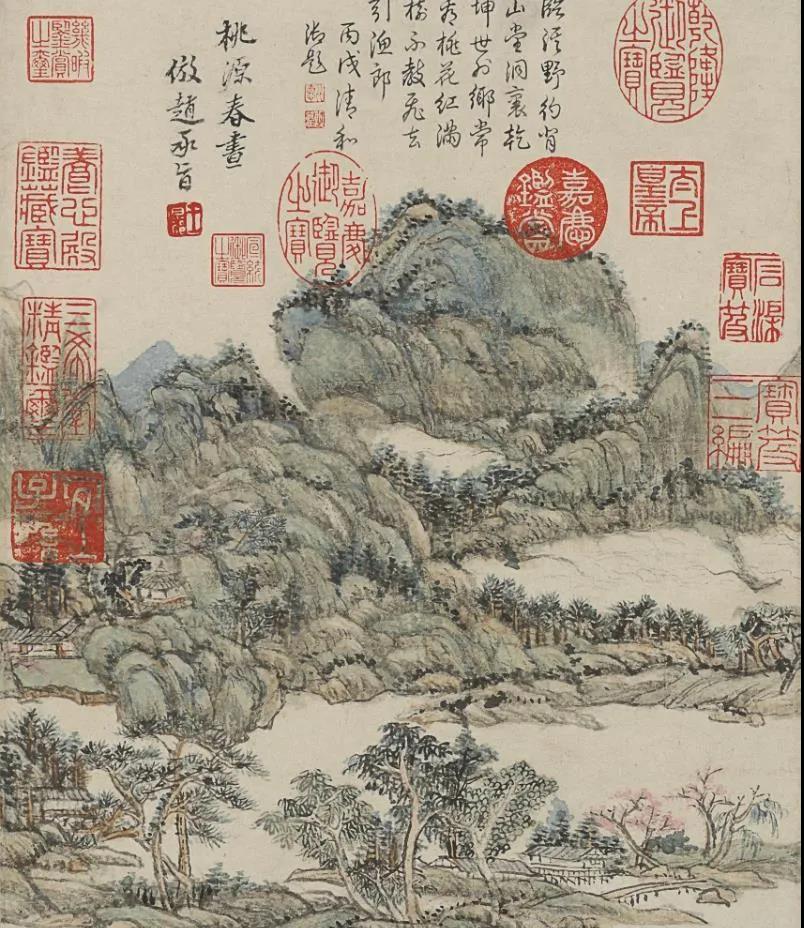 臨溪野彴背
山堂洞裏乾
坤世外鄉常
有桃花紅滿
樹不教飛去
引漁郎
丙戌清和
御題
桃源春晝
倣趙承旨
乾隆御覽之寶
太上皇帝
石渠寶笈
寶笈三編
嘉慶鑑賞
嘉慶御覽之寶
宣統御覽之寶
幾暇鑒賞之璽
養心殿鑑藏寶
三希堂精鑑璽
宜子孫